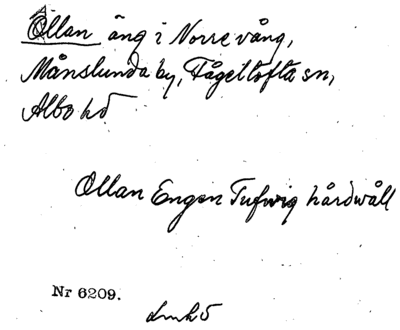 Ollan äng i Norre vång,
Månslunda by, Fågeltofta sn,
Albo hd
Ollan Engen Tufwig hårdwåll
Nr 6209.